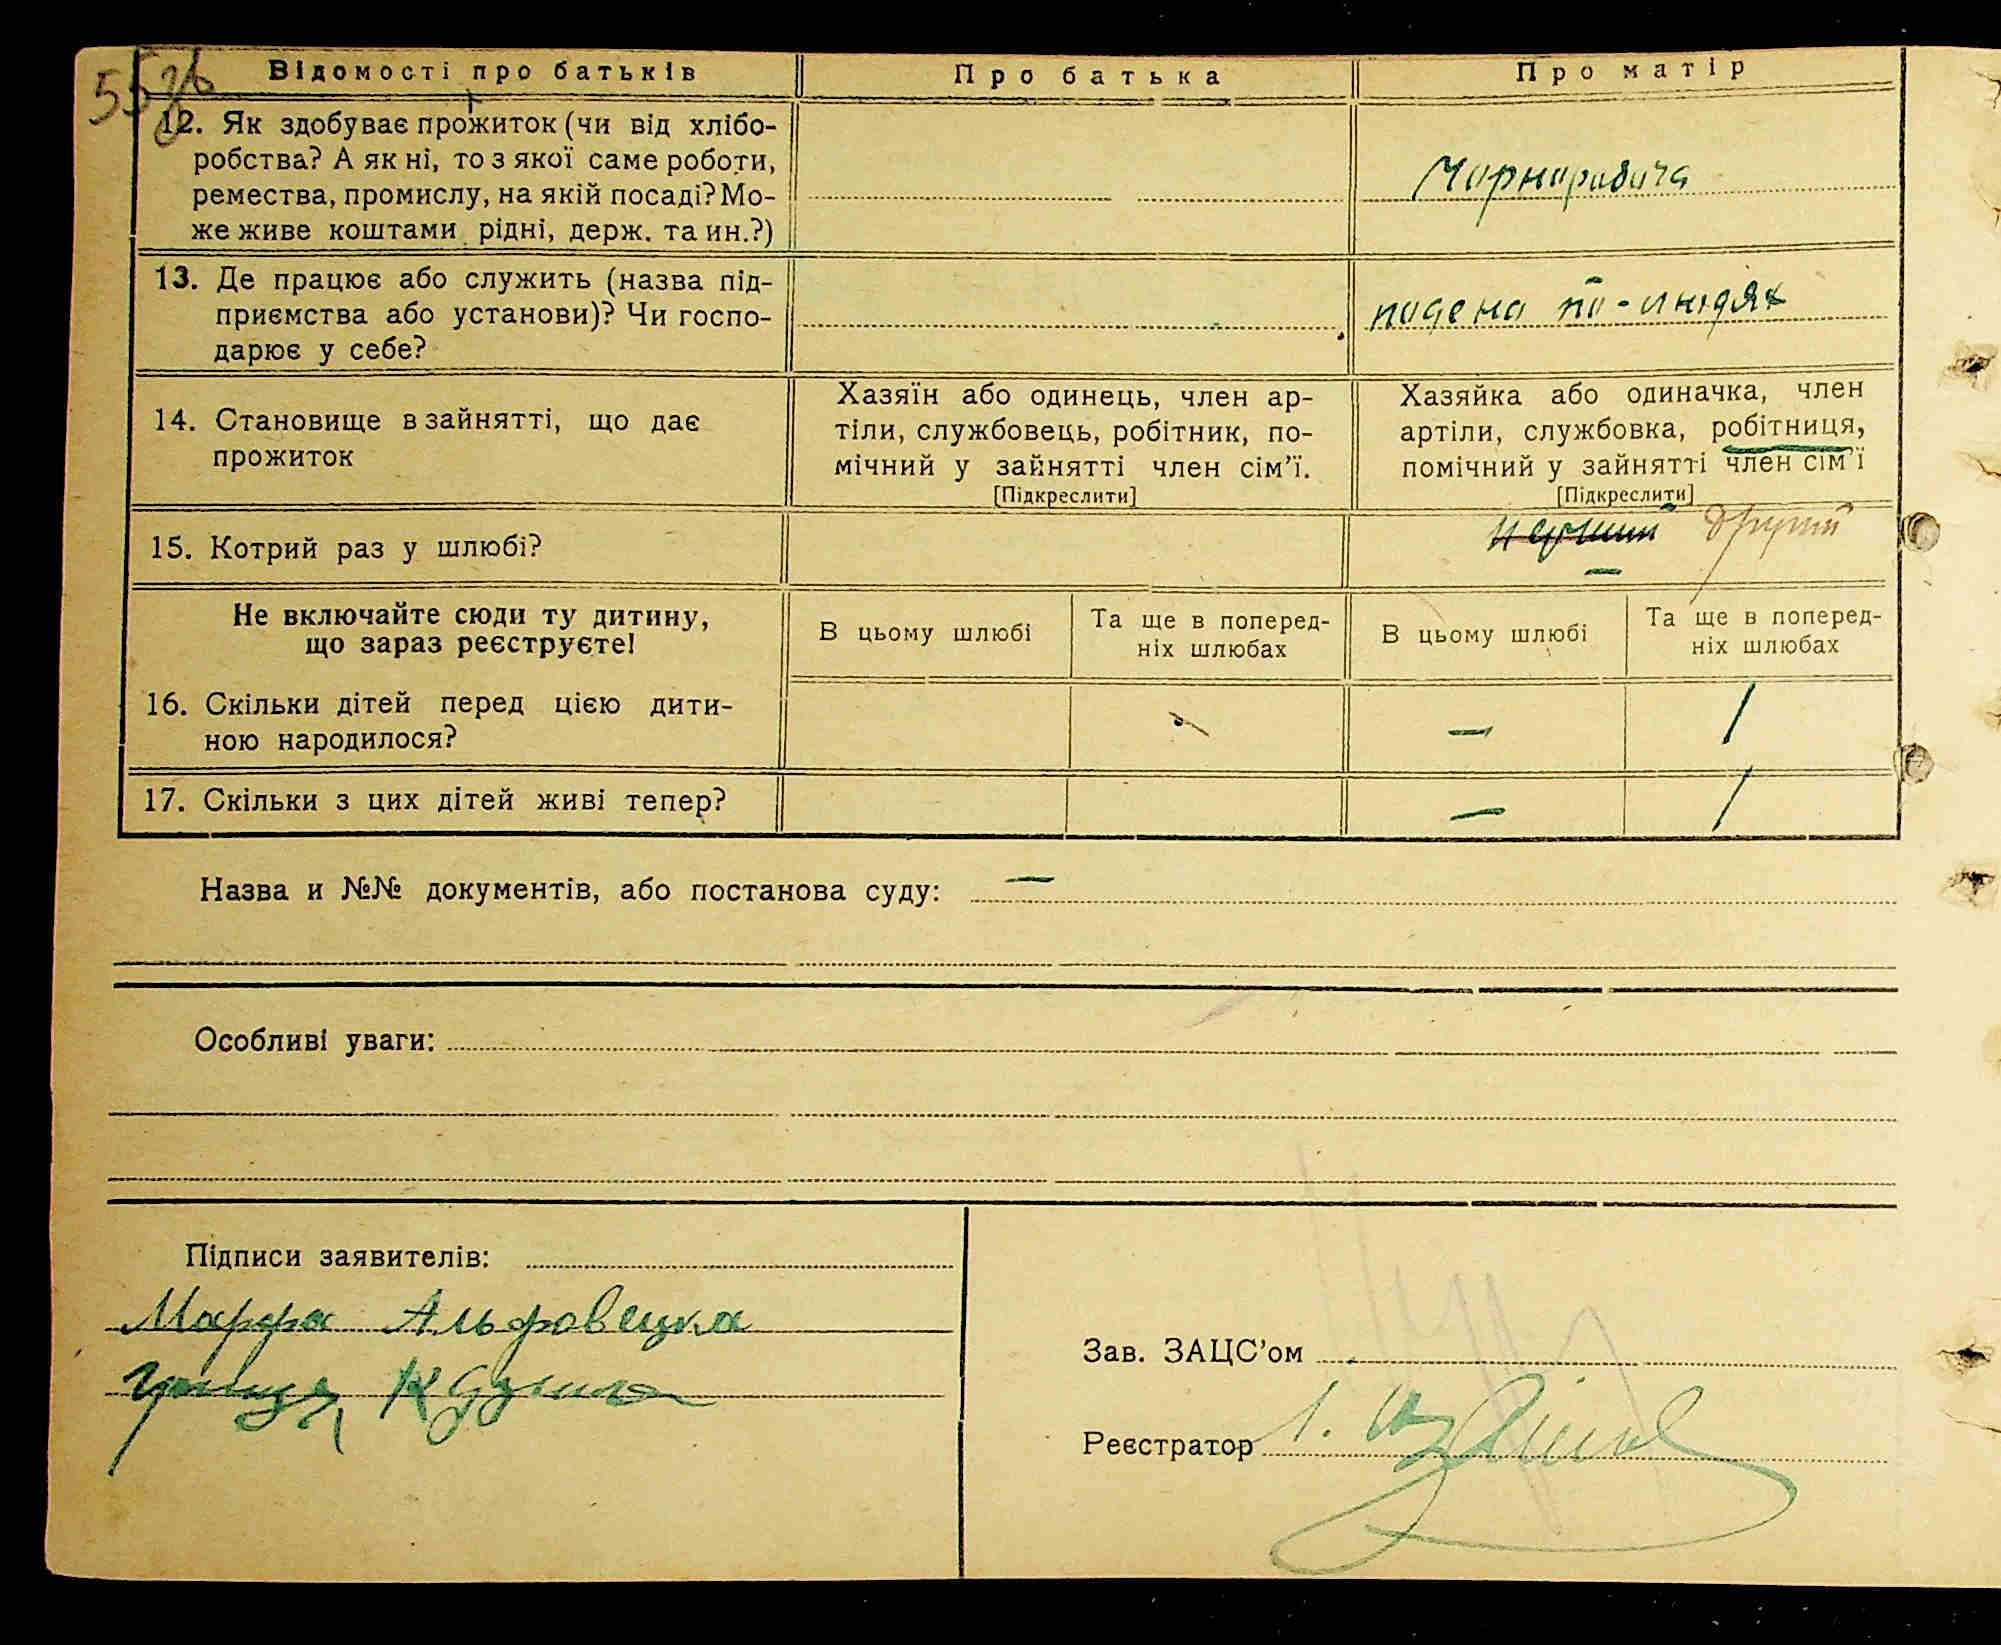 Відомості про батьків
Про батька
Про матір
12. Як здобуває прожиток (чи від хлібо-
робства? А як ні, то з якої саме роботи,
ремества, промислу, на якій посаді? Мо-
же живе коштами рідні, держ. та ин.?)
Чорноробоча
13. Де працює або служить (назва під-
приємства або установи)? Чи госпо-
дарює у себе?
подено по-людях
14. Становище в зайнятті, що дає
прожиток
Хазяїн або одинець, член ар-
тіли, службовець, робітник, по-
мічний у зайнятті член сім'ї.
[Підкреслити]
Хазяйка або одиначка, член
артіли, службовка, робітниця,
помічний у зайнятті член сім'ї
[Підкреслити]
15. Котрий раз у шлюбі?
перший другий
Не включайте сюди ту дитину,
що зараз реєструєте!
В цьому шлюбі
Та ще в поперед-
ніх шлюбах
В цьому шлюбі
Та ще в поперед-
ніх шлюбах
16. Скільки дітей перед цією дити-
ною народилося?
– 1
17. Скільки з цих дітей живі тепер?
– 1
Назва и №№ документів, або постанова суду: –
Особливі уваги:
Підписи заявителів:
Марфа Альфовецка
Зав. ЗАЦС'ом
Реєстратор